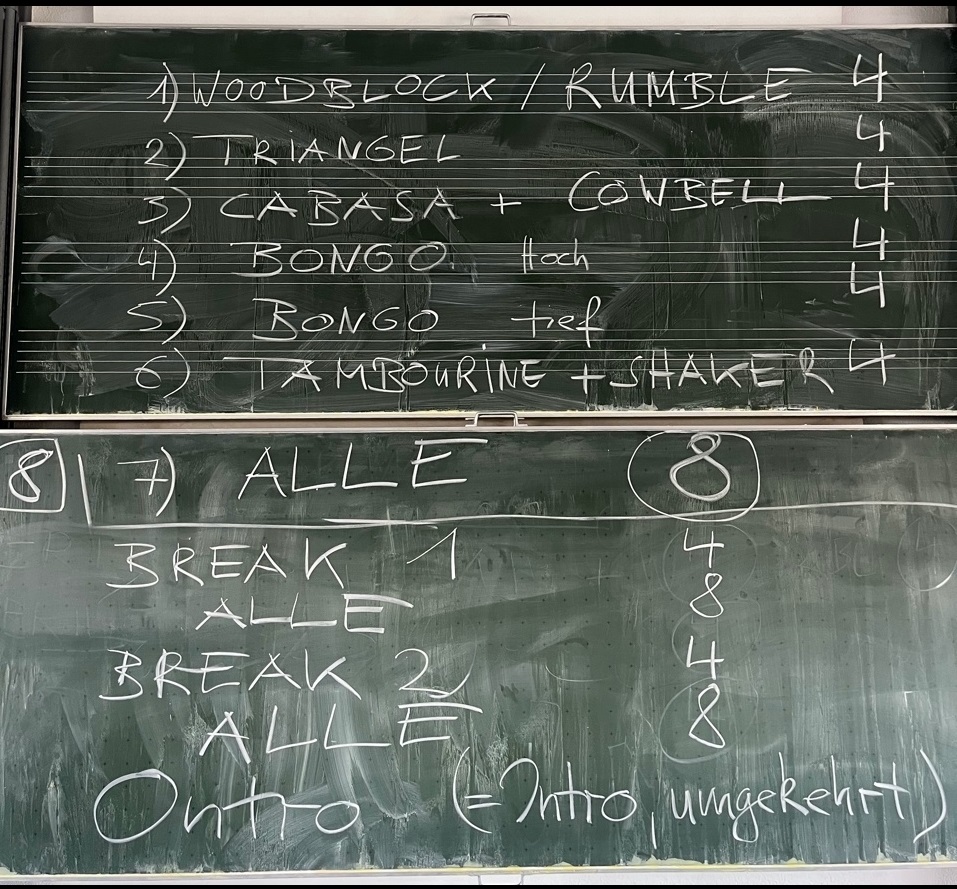 1) WOODBLOCK / RUMBLE 4
2) TRIANGEL 4
3) CABASA + COWBELL 4
4) BONGO Hoch 4
5) BONGO tief 4
6) TAMBOURINE + SHAKER 4
8 7) ALLE 8
BREAK 1 4
ALLE 8
BREAK 2 4
ALLE 8
Ontro (= Intro, umgekehrt)